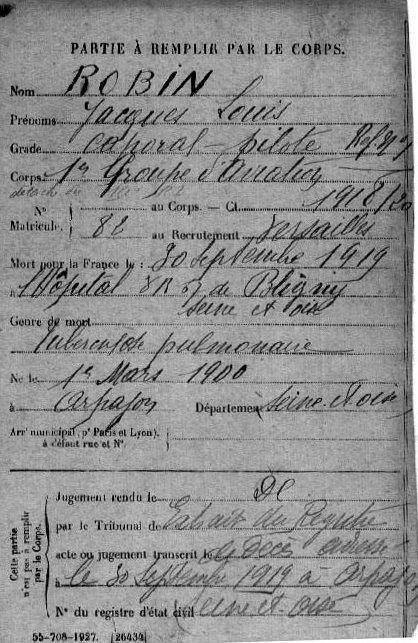 PARTIE À REMPLIR PAR LE CORPS.
Nom ROBIN
Prénoms Jacques Louis
Grade Caporal - pilote
Corps 1er Groupe d'Aviation
N° Matricule. 82 au Corps. — Cl. 1918/20
au Recrutement Versailles
Mort pour la France le : 30 septembre 1919
à l'Hôpital de Bligny
Seine et Oise
Genre de mort
Tuberculose pulmonaire
Né le 1er Mars 1900
à Arpajon Département Seine et Oise
Arrt municipal (pr Paris et Lyon),
à défaut rue et N°.
Cette partie n'est pas à remplir par le Corps.
Jugement rendu le
par le Tribunal de Extrait du Registre
acte ou jugement transcrit le
à le 30 septembre 1919 à Arpajon
N° du registre d'état civil Seine et Oise
55-708-1927. [26434]